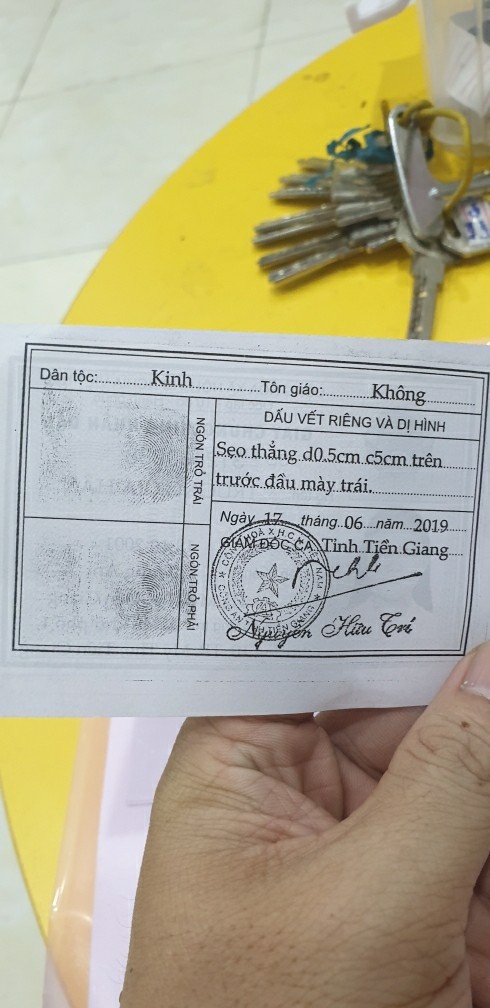 Dân tộc: Kinh Tôn giáo: Không
NGÓN TRỎ TRÁI
DẤU VẾT RIÊNG VÀ DỊ HÌNH
Sẹo thẳng d0.5cm c5cm trên
trước đầu mày trái.
NGÓN TRỎ PHẢI
Ngày 17 tháng 06 năm 2019
GIÁM ĐỐC CA Tỉnh Tiền Giang
Nguyễn Hữu Trí